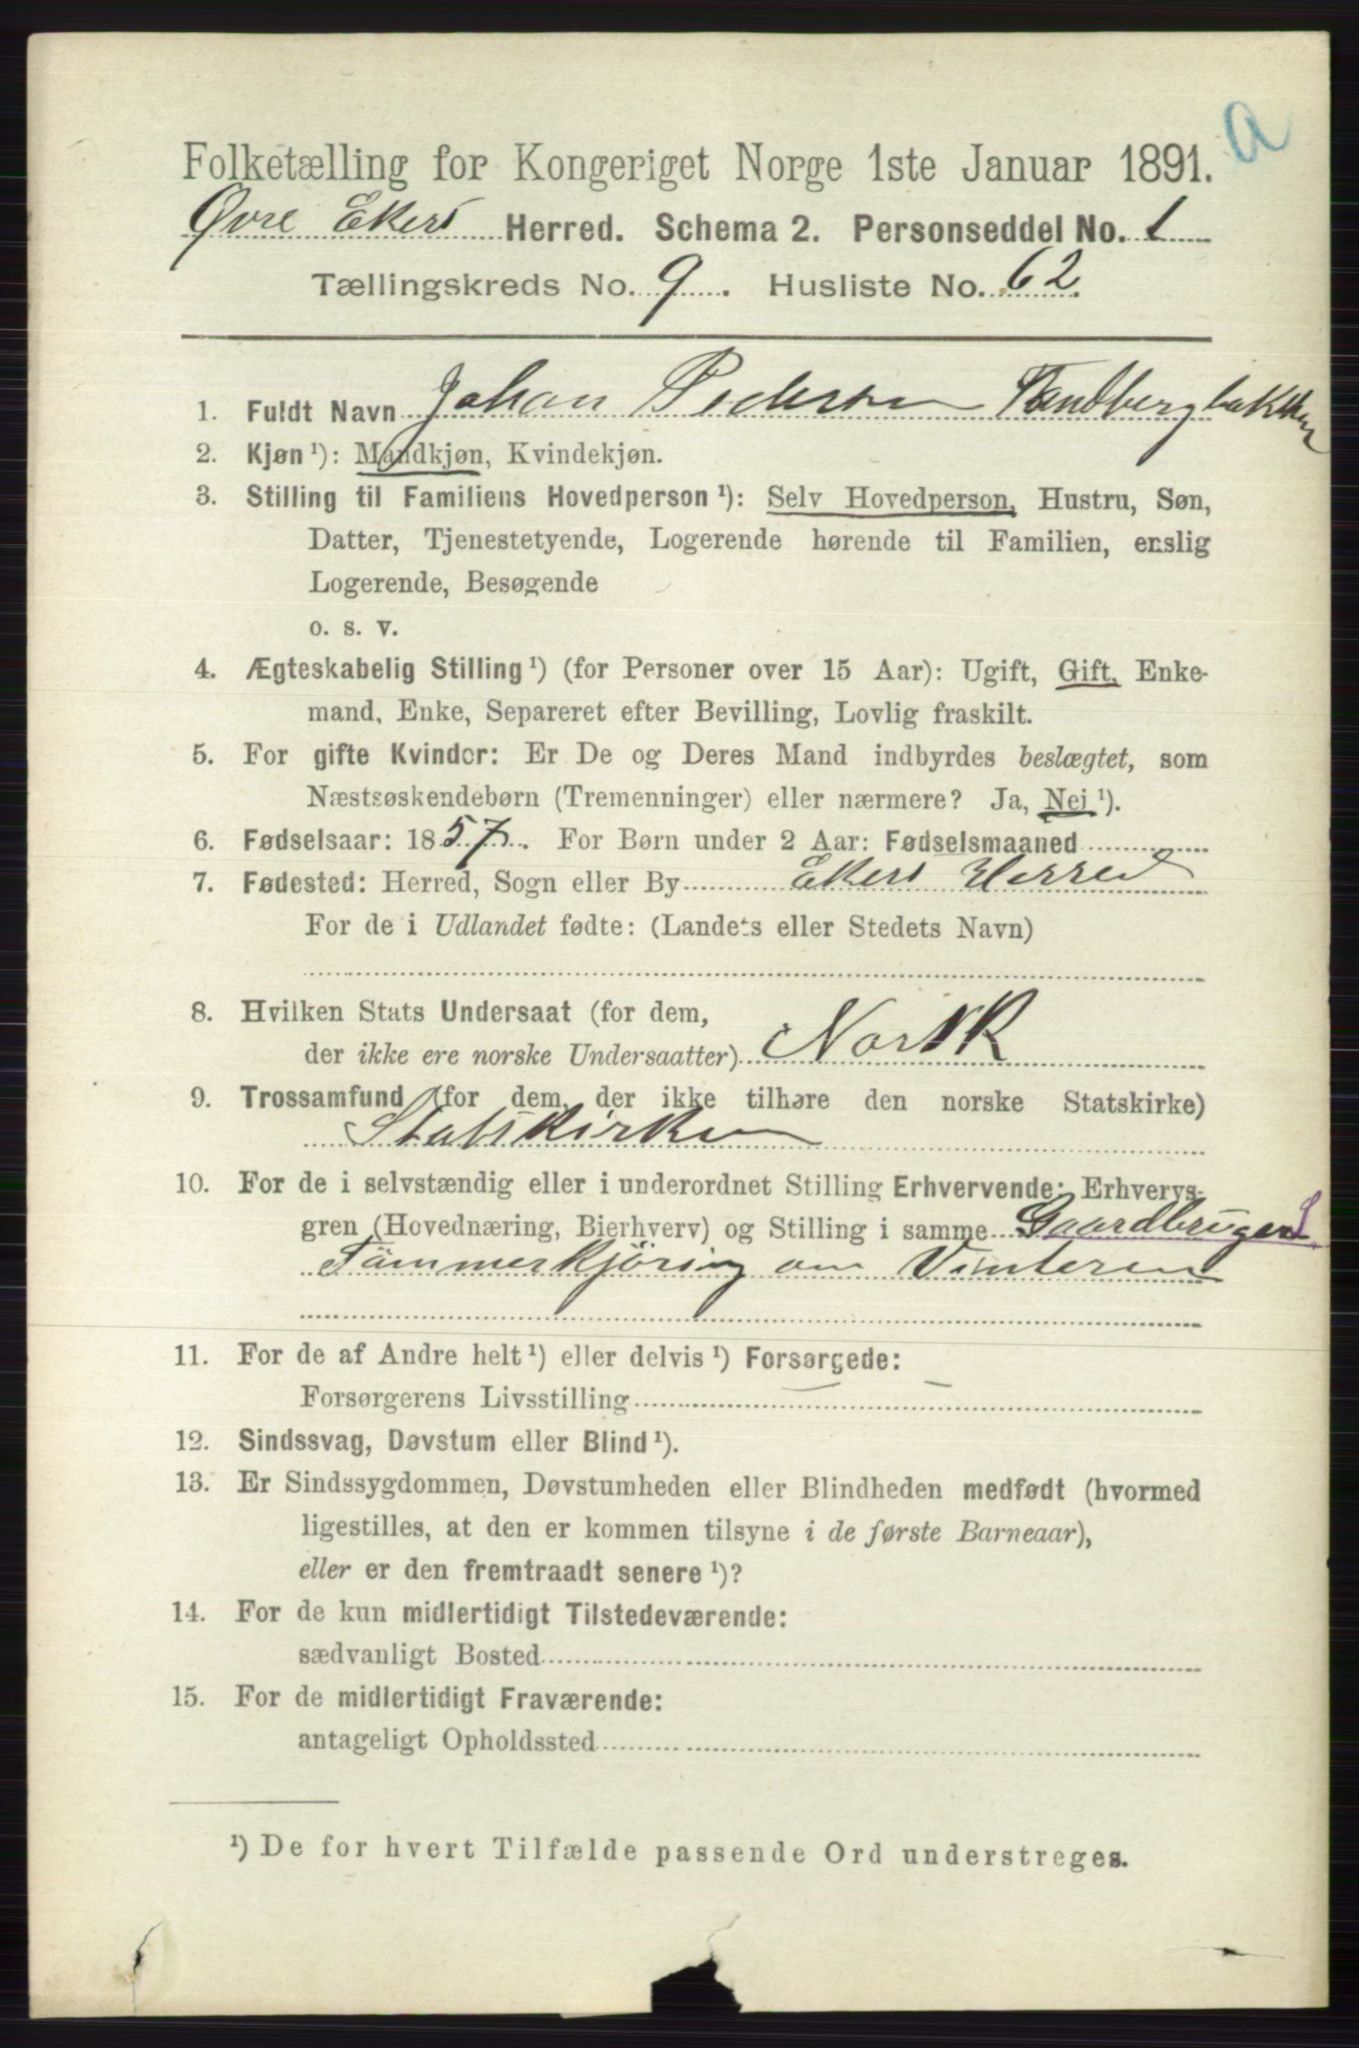 a
Folketælling for Kongeriget Norge 1ste Januar 1891.
Øvre Eker Herred. Schema 2. Personseddel No. 1
Tællingskreds No. 9. Husliste No. 62.
1. Fuldt Navn Johan Pedersen Tandbergbakken
2. Kjøn ¹): Mandkjøn, Kvindekjøn.
3. Stilling til Familiens Hovedperson ¹): Selv Hovedperson, Hustru, Søn,
Datter, Tjenestetyende, Logerende hørende til Familien, enslig
Logerende, Besøgende
o. s. v.
4. Ægteskabelig Stilling ¹) (for Personer over 15 Aar): Ugift, Gift, Enke-
mand, Enke, Separeret efter Bevilling, Lovlig fraskilt.
5. For gifte Kvinder: Er De og Deres Mand indbyrdes beslægtet, som
Næstsøskendebørn (Tremenninger) eller nærmere? Ja, Nei ¹).
6. Fødselsaar: 1857. For Børn under 2 Aar: Fødselsmaaned
7. Fødested: Herred, Sogn eller By Ekers Herred
For de i Udlandet fødte: (Landets eller Stedets Navn)
8. Hvilken Stats Undersaat (for dem,
der ikke ere norske Undersaatter) Norsk
9. Trossamfund (for dem, der ikke tilhøre den norske Statskirke)
Statskirken
10. For de i selvstændig eller i underordnet Stilling Erhvervende: Erhvervs-
gren (Hovednæring, Bierhverv) og Stilling i samme Gaardbruger S
Tömmerkjöring om Vinteren
11. For de af Andre helt ¹) eller delvis ¹) Forsørgede:
Forsørgerens Livsstilling
12. Sindssvag, Døvstum eller Blind ¹).
13. Er Sindssygdommen, Døvstumheden eller Blindheden medfødt (hvormed
ligestilles, at den er kommen tilsyne i de første Barneaar),
eller er den fremtraadt senere ¹)?
14. For de kun midlertidigt Tilstedeværende:
sædvanligt Bosted
15. For de midlertidigt Fraværende:
antageligt Opholdssted
¹) De for hvert Tilfælde passende Ord understreges.